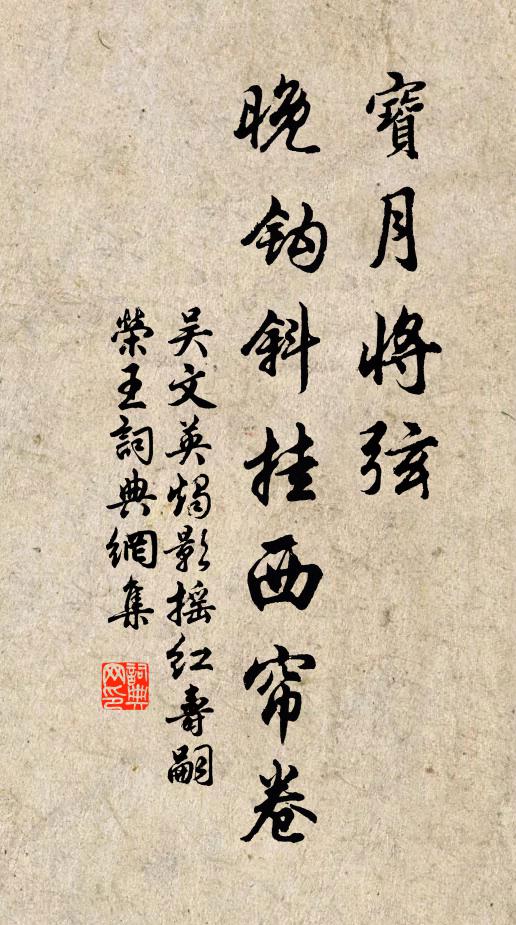 寶月將弦
晚鈎斜挂西帘卷
吴文英燭影摇红壽嗣
榮王詞典網集
詞典网印